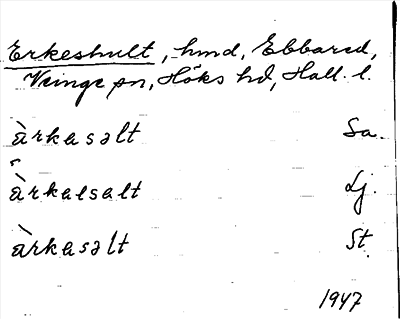 Erkeshult, hmd, Ebbared,
Veinge sn, Höks hd, Hall. l.
àrkasalt Sa.
àrkalsalt Lj.
àrkasalt St.
1947